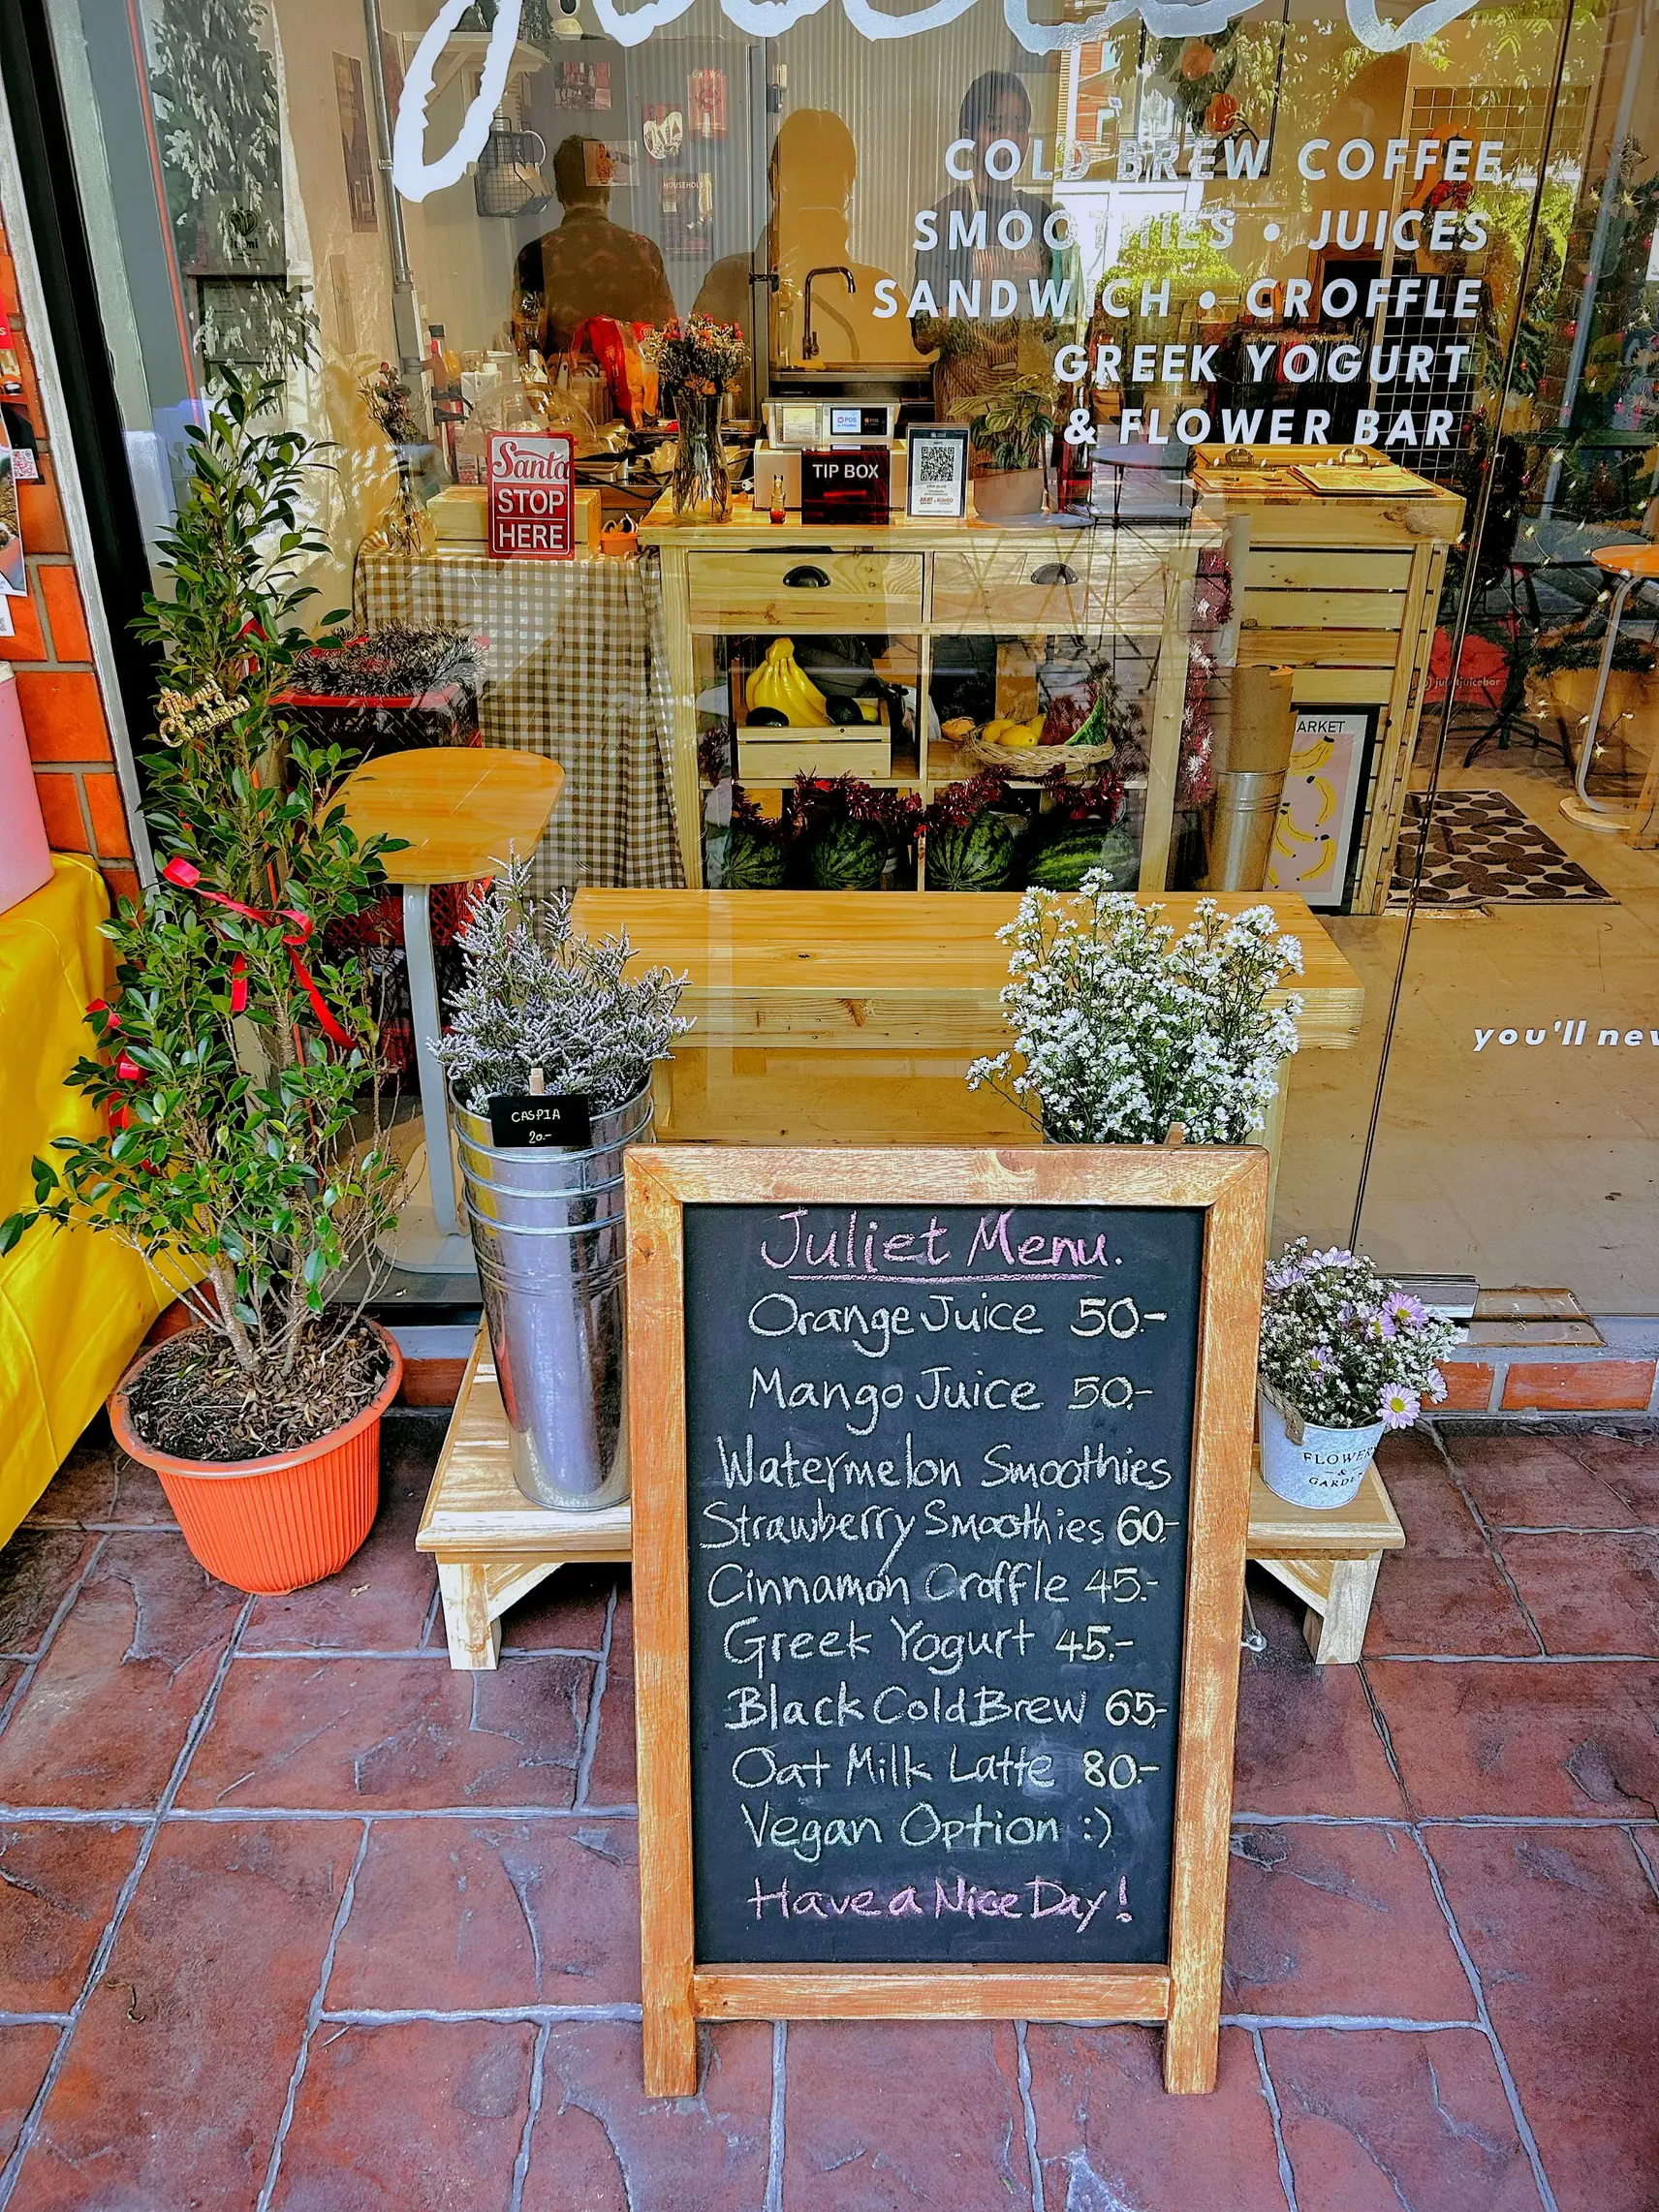 COLD BREW COFFEE
SMOOTHIES • JUICES
SANDWICH • CROFFLE
GREEK YOGURT
& FLOWER BAR
HOUSEHOLD
Santa
STOP
HERE
POS
TIP BOX
ARKET
you'll nev
CASPIA
20.-
Juliet Menu.
Orange Juice 50.-
Mango Juice 50.-
Watermelon Smoothies
Strawberry Smoothies 60-
Cinnamon Croffle 45.-
Greek Yogurt 45.-
Black Cold Brew 65-
Oat Milk Latte 80.-
Vegan Option :)
Have a Nice Day!
FLOWER
&
GARDEN